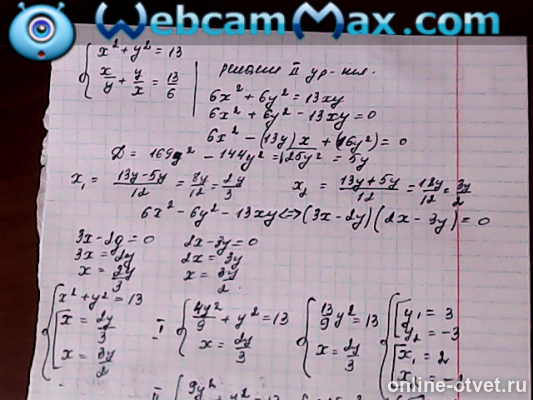 WebcamMax.com
x² + y² = 13
x/y + y/x = 13/6
решаем II ур-ния.
6x² + 6y² = 13xy
6x² + 6y² - 13xy = 0
6x² - (13y)x + (6y²) = 0
D = 169y² - 144y² = 25y² = 5y
x₁ = (13y-5y)/12 = 8y/12 = 2y/3    x₂ = (13y+5y)/12 = 18y/12 = 3y/2
6x² - 6y² - 13xy <=> (3x-2y)(2x-3y) = 0
3x-2y=0    2x-3y=0
3x=2y    2x=3y
x = 2y/3    x = 3y/2
x² + y² = 13
x = 2y/3
x = 3y/2
I
4y²/9 + y² = 13
x = 2y/3
13/9 y² = 13
x = 2y/3
y₁ = 3
y₂ = -3
x₁ = 2
II 9y²
online-otvet.ru